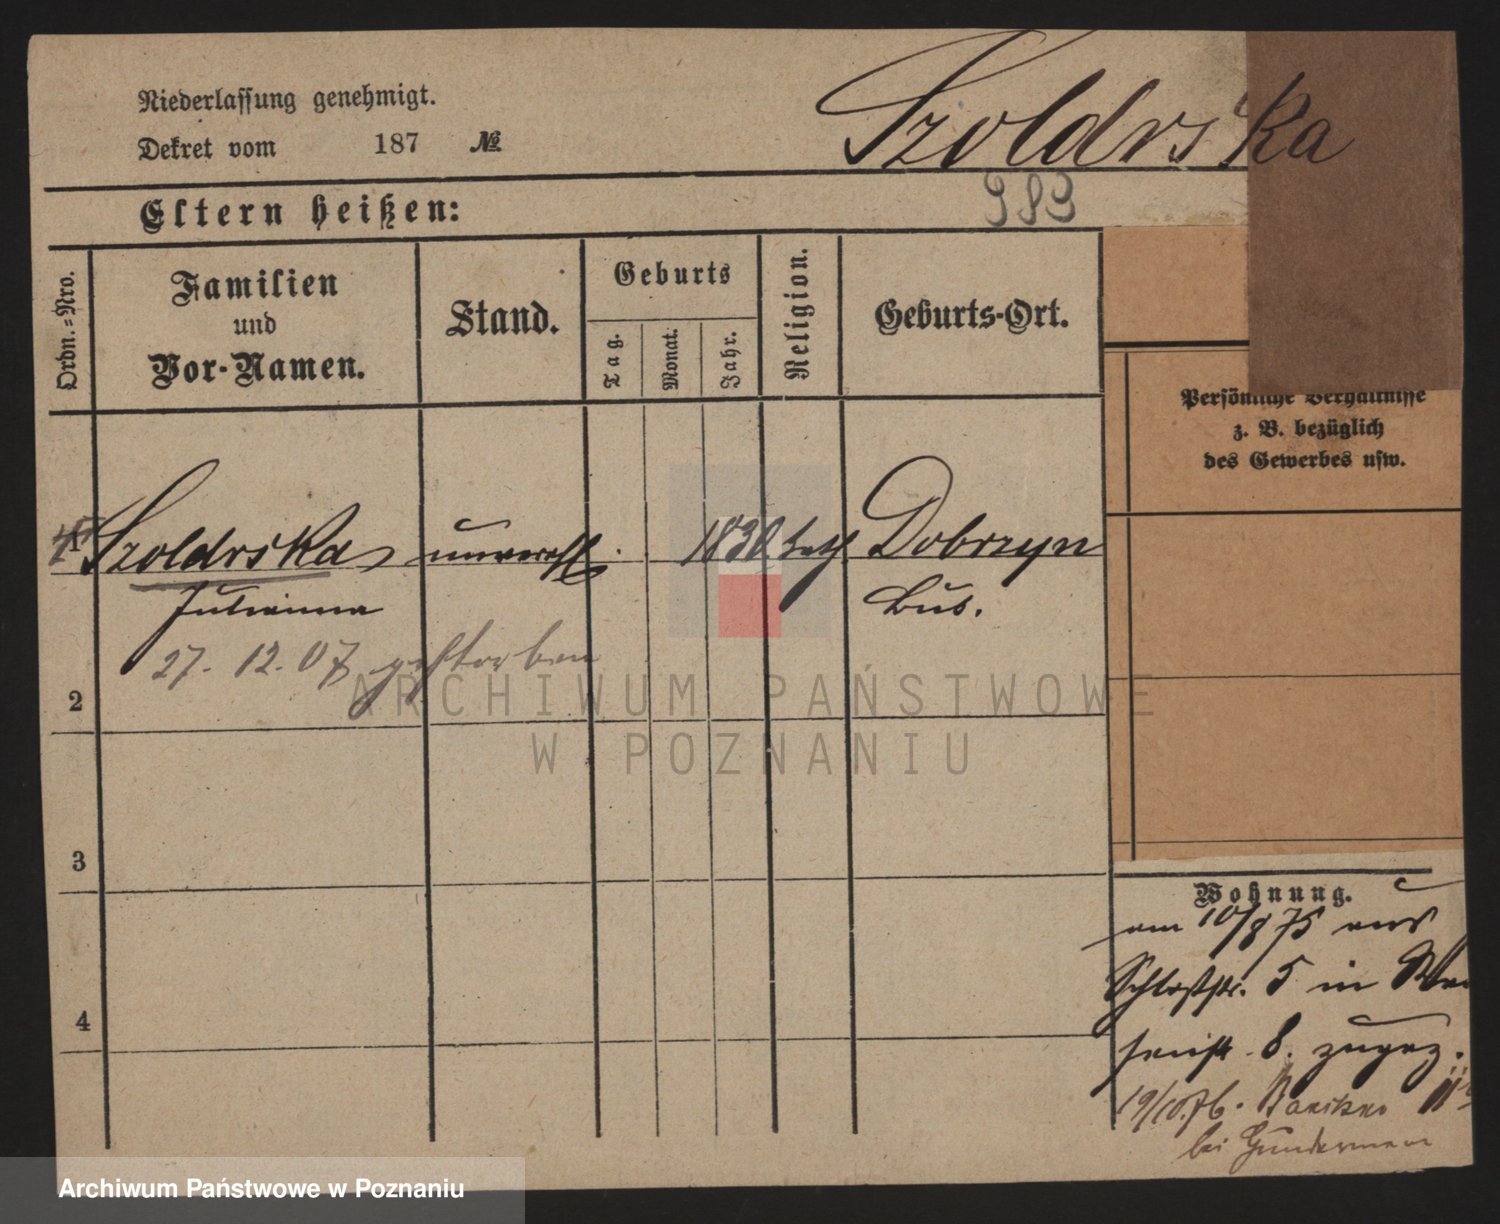 Niederlassung genehmigt.
Dekret vom 187 №
Szoldrska
983
Eltern heißen:
Ordn.-Nro.
Familien
und
Vor-Namen.
Stand.
Geburts
Tag.
Monat.
Jahr.
Religion.
Geburts-Ort.
Persönliche Verhältnisse
z. B. bezüglich
des Gewerbes usw.
1 Szoldrska unvereh. 1830 kath Dobrzyn
Julianna
27. 12. 07 gestorben
2
3
4
Wohnung.
am 10/8 75 aus
Schloßstr. 5 in
8. zugez.
19/10.76.
bei Gundermann
ARCHIWUM PAŃSTWOWE
W POZNANIU
Archiwum Państwowe w Poznaniu